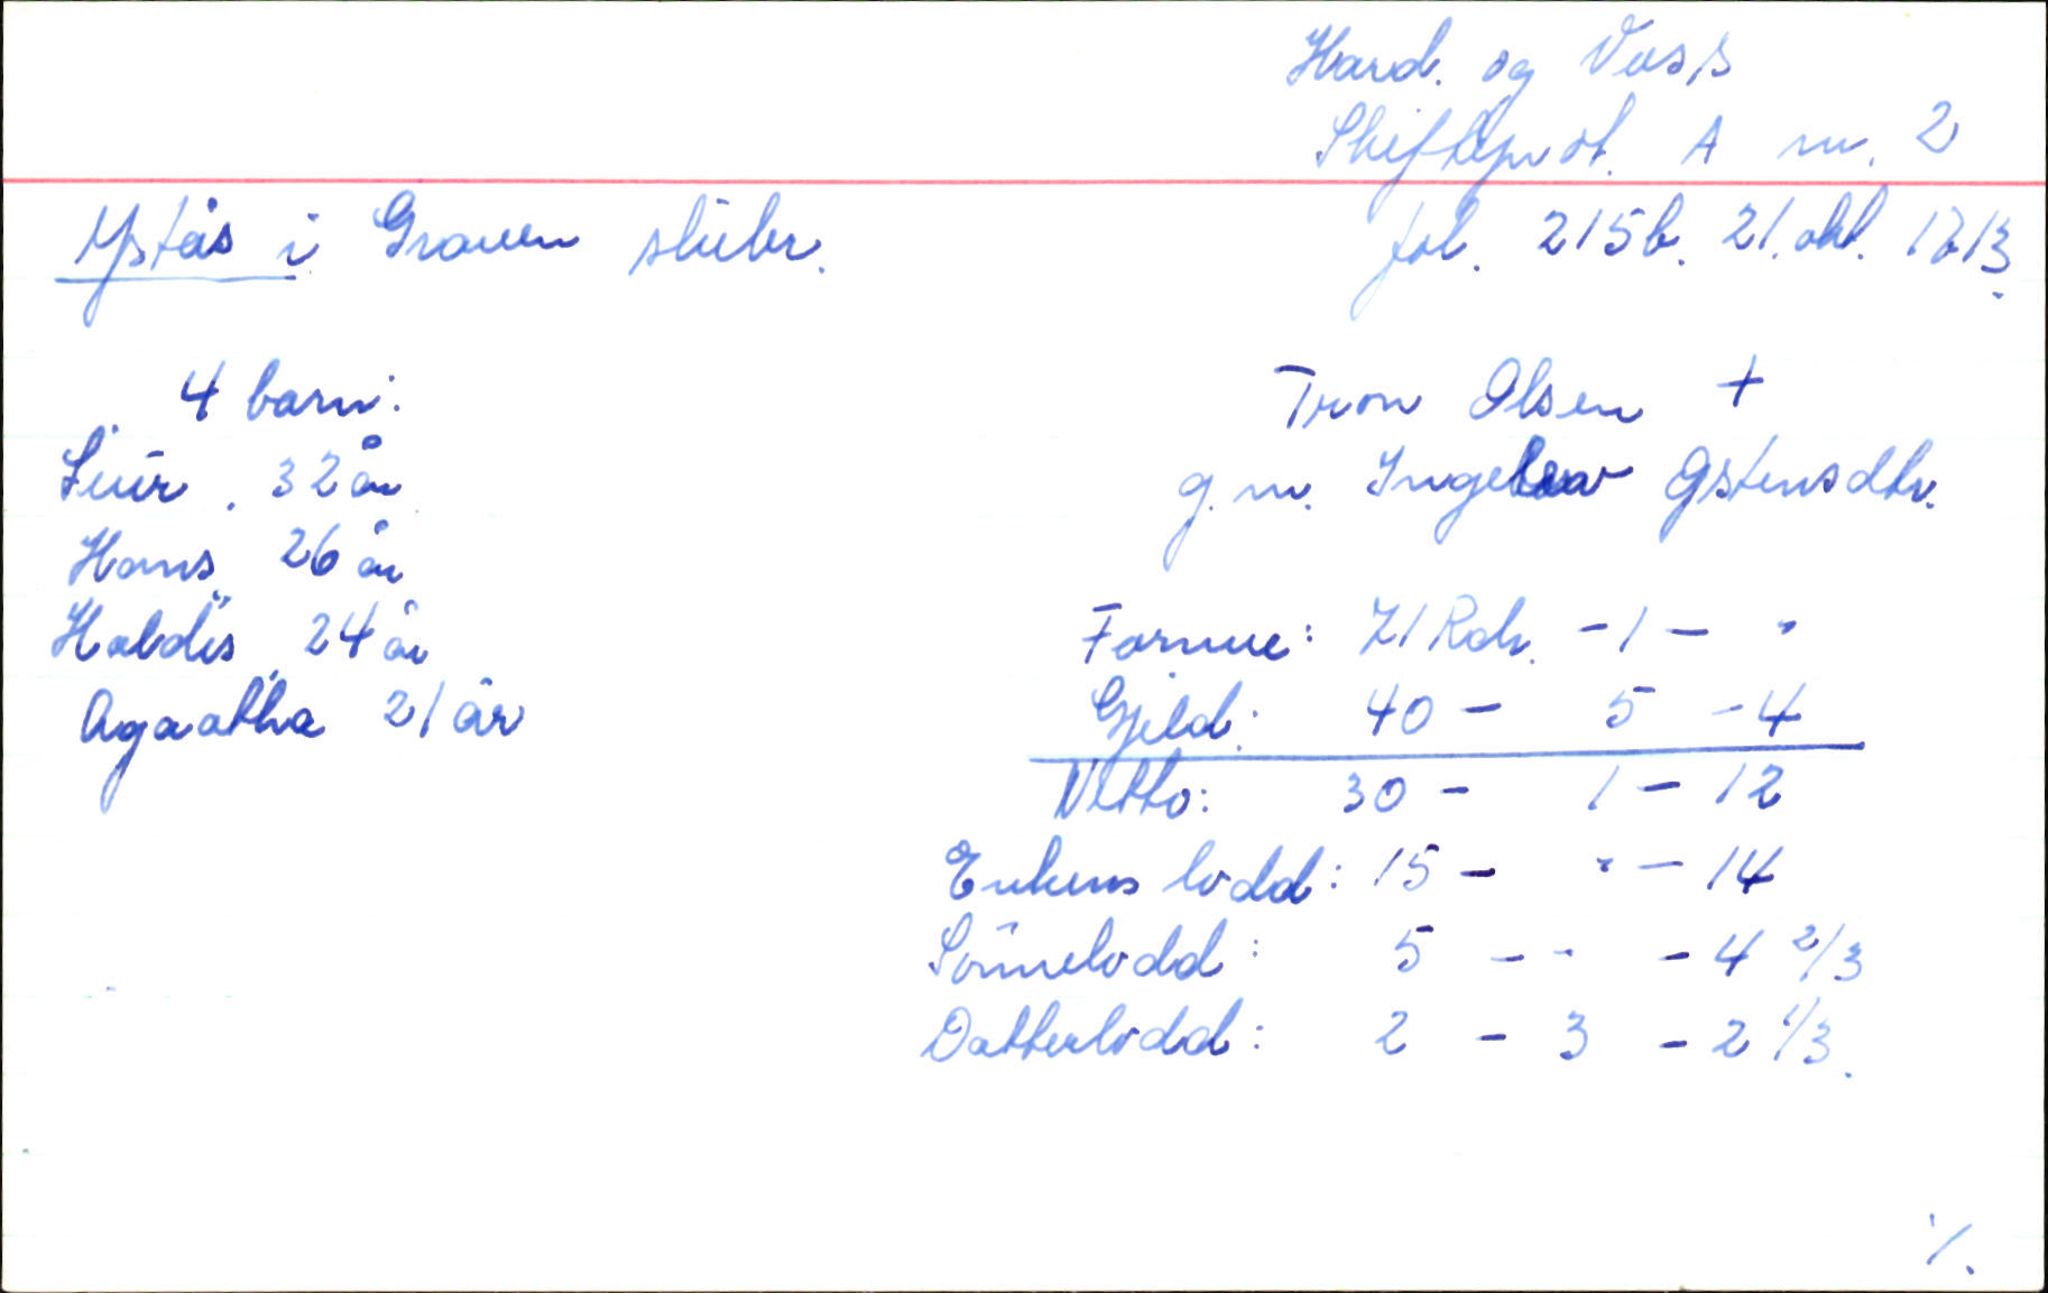 Hard. og Voss
Skifteprot. A nr. 2
Ystås i Graven skibr. fol. 215b. 21. okt. 1713.
4 barn: Tron Olsen +
32 år g. m. Østensdtr.
Hans 26 år
Haldis 24 år Formue: 71 Rdr. - 1 - "
Agaatha 21 år Gjeld: 40 - 5 - 4
Netto: 30 - 1 - 12
Enkens lodd: 15 - " - 14
Sönnelodd: 5 - " - 4 2/3
Datterlodd: 2 - 3 - 2 1/3.